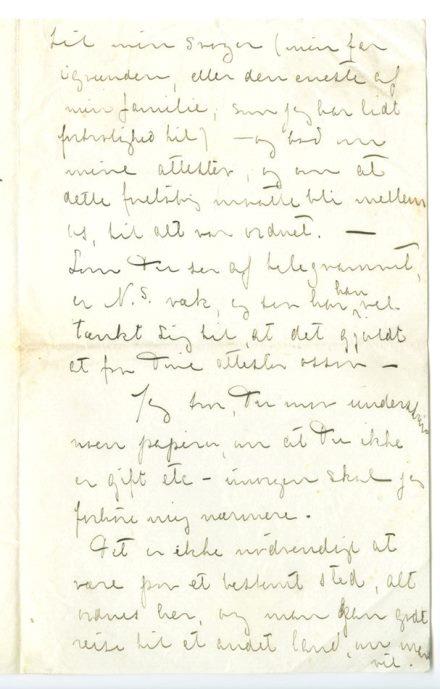 til min svoger (min far
igrunden, eller den eneste af
min familie, som jeg har lidt
fortrolighed til) – og bad om
mine attester, og om at
dette foreløbig måtte bli mellem
os, til alt var ordnet. –
Som Du ser af telegrammet,
er N.S. væk, og så har han vel
tænkt sig til, at det gjaldt
at få Dine attester osså –
Jeg tror, Du må underskrive
noen papirer, om at Du ikke
er gift etc – imorgen skal jeg
forhøre mig nærmere.
Det er ikke nødvendigt at
være på et bestemt sted, alt
ordnes her, og man kan godt
reise til et andet land, om man
vil.